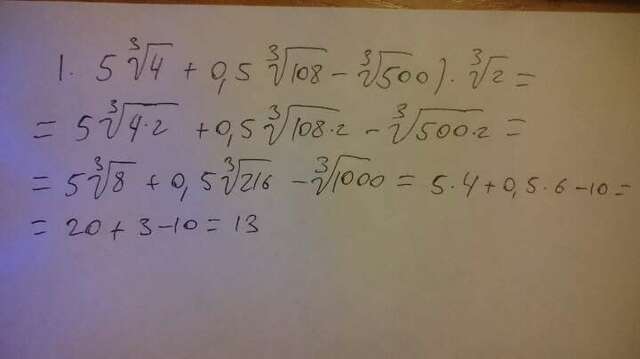 1. 5∛4 + 0,5 ∛108 - ∛500) · ∛2 =
= 5∛4·2 + 0,5 ∛108·2 - ∛500·2 =
= 5∛8 + 0,5∛216 - ∛1000 = 5·4+0,5·6-10=
= 20+3-10=13